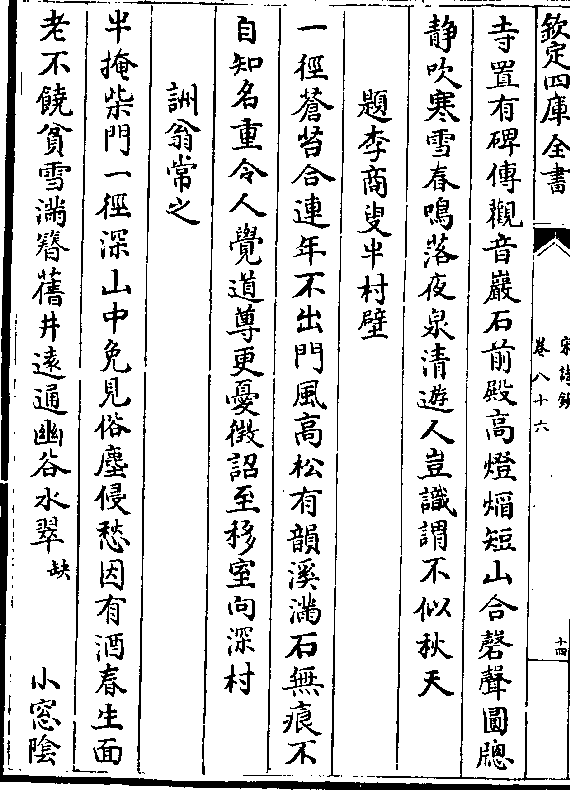 欽定四庫全書
宋詩鈔
卷八十六
十四
寺置有碑傳觀音巖石前殿高燈熖短山合磬聲圓牕
静吹寒雪春鳴落夜泉清遊人豈識謂不似秋天
題李商叟半村壁
一徑蒼苔合連年不出門風高松有韻溪滿石無痕不
自知名重令人覺道尊更憂徴詔至移室向深村
訓翁常之
半掩柴門一徑深山中免見俗塵侵愁因有酒春生面
老不饒貧雪滿簪舊井逺通幽谷水翠缺 小窓陰